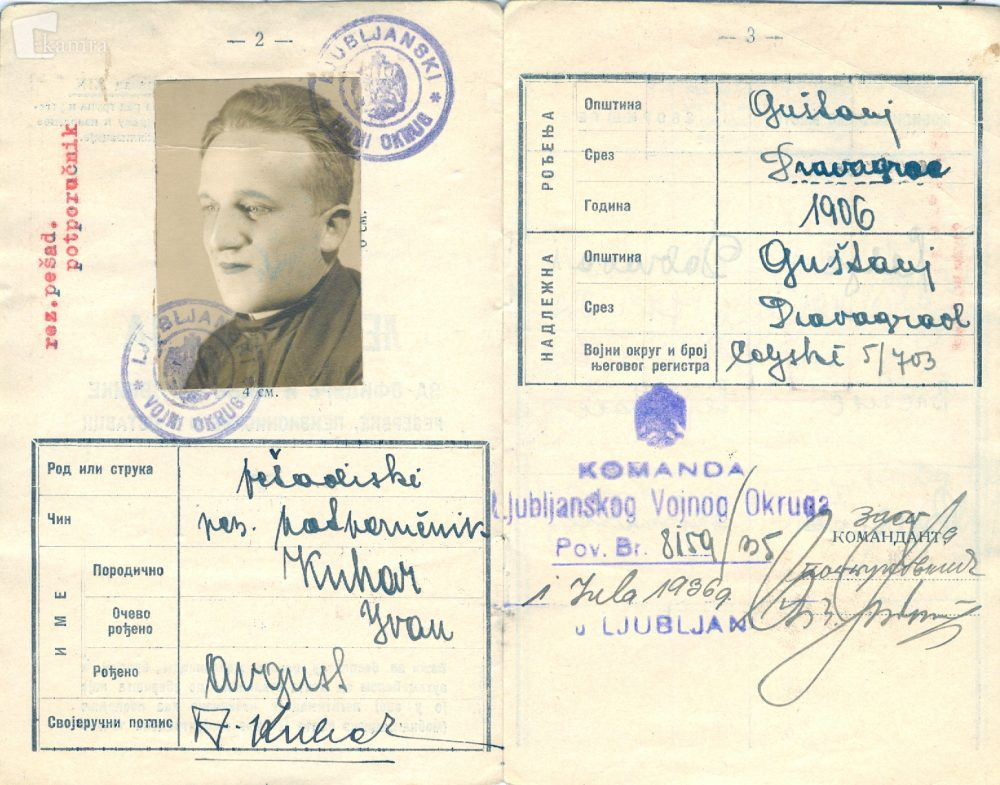 kamra
— 2 —
LJUBLJANSKI
VOJNI OKRUG
rez. pešad.
potporučnik
6 см.
LJUBLJANSKI
VOJNI OKRUG
4 см.
Род или струка pešadiski
Чин рез. potporučnik
ИМЕ
Породично Kuhar
Очево рођено Ivan
Рођено Avgust
Својеручни потпис A. Kuhar
— 3 —
РОЂЕЊА
Општина Guštanj
Срез Dravagrad
Година 1906
НАДЛЕЖНА
Општина Guštanj
Срез Dravagrad
Војни округ и број
његовог регистра Celjski 5/703
KOMANDA
Ljubljanskog Vojnog Okruga
Pov. Br. 8159/35
1 Jula 1936 g.
U LJUBLJANI
КОМАНДАНТ,